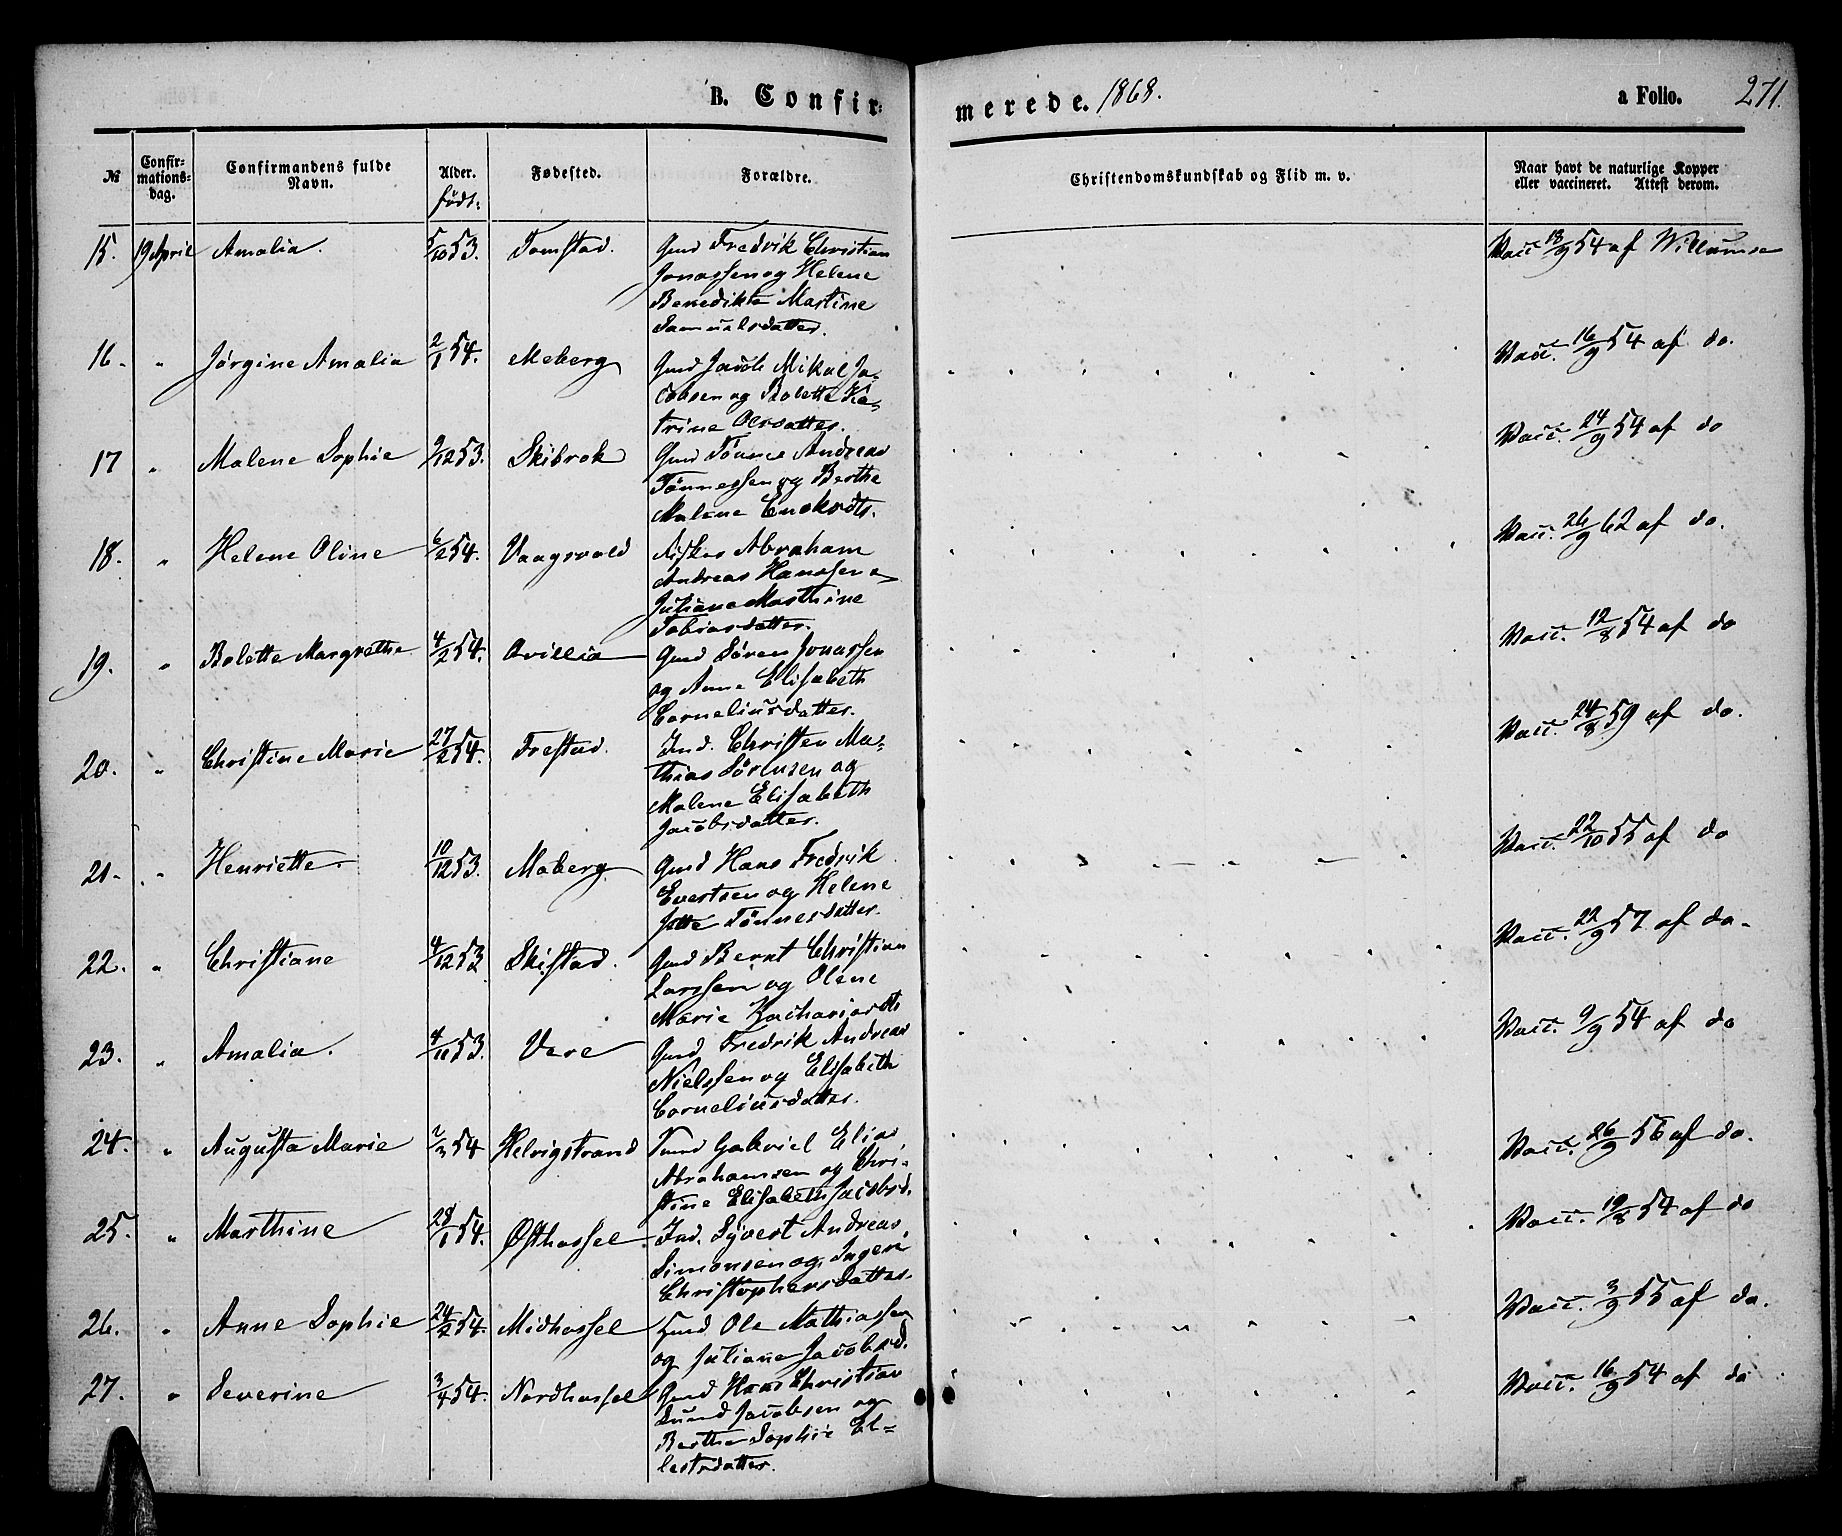 B. Confir-
merede. 1868.
a Folio. 271.
№
Confir-
mations-
dag.
Confirmandens fulde
Navn.
Alder.
født:
Fødested.
Forældre.
Christendomskundskab og Flid m. v.
Naar havt de naturlige Kopper
eller vaccineret. Attest derom.
15. 19 April Amalia. 5/10 53. Tomstad. Gmd Fredrik Christian
Jonassen og Helene
Benedikte Martine
Samuelsdatter.
Vacc 18/9 54 af Willumse
16. " Jørgine Amalia 2/1 54. Meberg Gmd Jacob Mikal Ja-
cobsen og Bolette Ka-
trine Olesdatter.
Vacc. 16/9 54 af do.
17 " Malene Sophie 9/12 53. Skibrok Gmd Tønnes Andreas
Tønnessen og Berthe
Malene
Vacc. 24/9 54 af do
18. " Helene Oline 6/2 54. Vaagsvold Abraham
Andreas Hanssen o
Juliane Marthine
Tobiasdatter.
Vacc. 26/9 62 af do.
19. " Bolette Margrethe 4/2 54. Ovillia Gmd Søren Jonassen
og Anne Elisabeth
Corneliusdatter.
Vacc. 12/8 54 af do
20. " Christine Marie 27/2 54. Frestad. Ind. Christen Ma-
thias Sørensen og
Malene Elisabeth
Jacobsdatter.
Vacc. 24/8 59 af do.
21. " Henriette 10/12 53. Maberg Gmd Hans Fredrik
Evertsen og Helene
Jitte Tønnesdatter.
Vacc. 22/10 55 af do
22. " Christiane 4/12 53 Skistad. Gmd Bernt Christian
Larssen og Olene
Marie Zachariasdtr
Vacc. 22/9 57 af do.
23. " Amalia. 4/11 53. Vere Gmd Fredrik Andreas
Nielssen og Elisabeth
Corneliusdatter.
Vacc. 9/9 54 af do
24. " Augusta Marie 2/3 54 Helvigstrand Gabriel Elias
Abrahamsen og Chri-
stine Elisabeth Jacobsd.
Vacc. 26/9 56 af do.
25. " Marthine 28/1 54. Østhassel Ind. Syvert Andreas
Simonsen og Ingeri
Christophersdatter.
Vacc. 19/8 54 af do
26. " Anne Sophie 24/2 54. Midhassel Ole Mathiassen
og Juliane Jacobsd.
Vacc. 3/9 55 af do.
27. " Severine 3/4 54. Nordhassel Gmd Hans Christian
Lund Jacobsen og
Berthe Sophie El-
lertsdatter.
Vacc. 16/9 54 af do